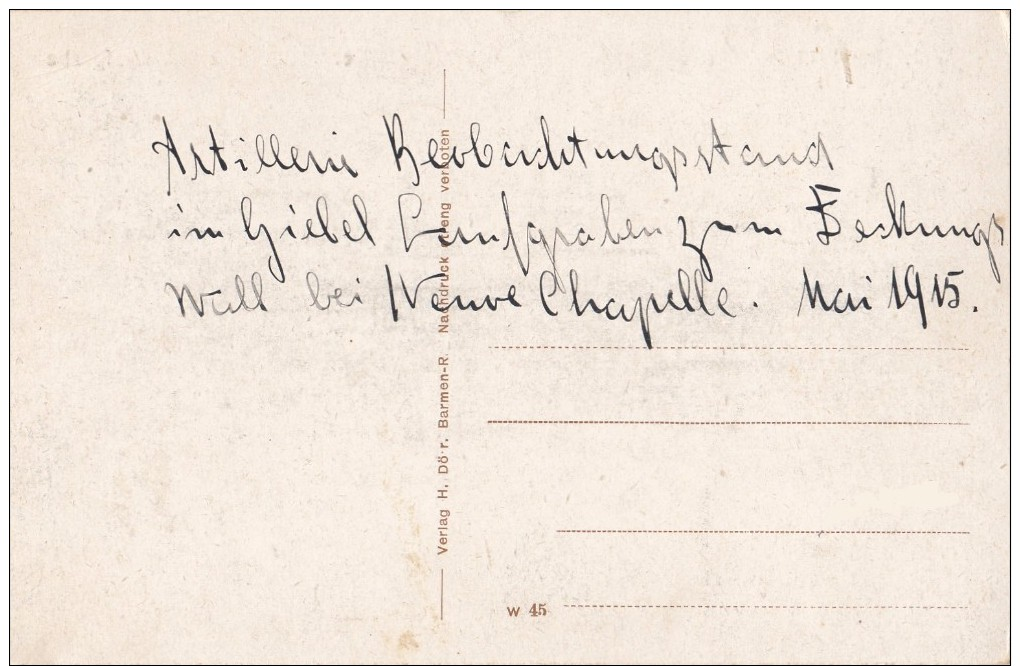 Artillerie Beobachtungsstand
im Giebel Laufgraben zum Deckungs
Wall bei Neuve Chapelle. Mai 1915.
Verlag H. Dö r. Barmen-R. Nachdruck streng verboten
W 45